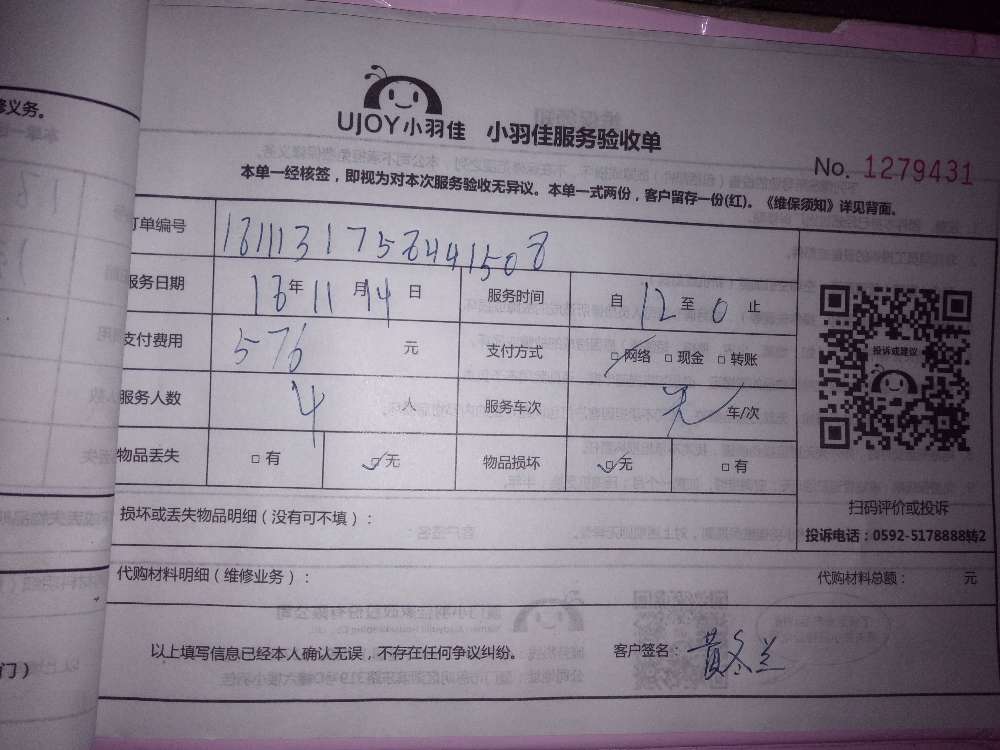 UJOY小羽佳 小羽佳服务验收单
No. 1279431
本单一经核签，即视为对本次服务验收无异议。本单一式两份，客户留存一份(红)。《维保须知》详见背面。
修义务。
订单编号 1811131758441508
服务日期 18年11月14日 服务时间 自12至0止
支付费用 576元 支付方式 □网络 □现金 □转账
服务人数 4人 服务车次 无 车/次
物品丢失 □有 □无 物品损坏 □无 □有
投诉或建议
扫码评价或投诉
投诉电话：0592-5178888转2
损坏或丢失物品明细（没有可不填）：
代购材料明细（维修业务）： 代购材料总额： 元
以上填写信息已经本人确认无误，不存在任何争议纠纷。 客户签名：黄冬兰
门）